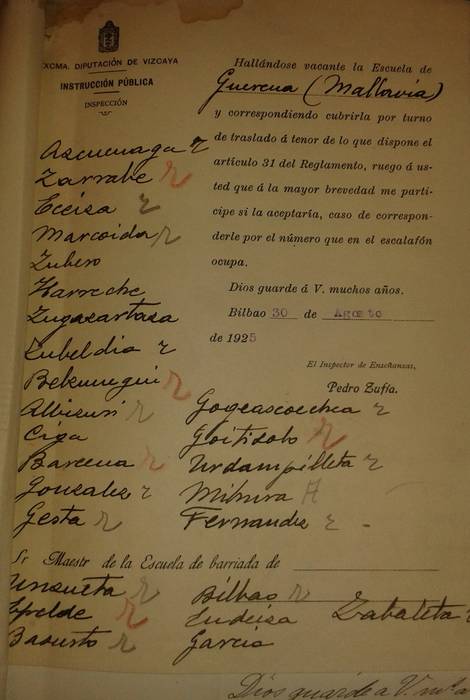 EXCMA. DIPUTACIÓN DE VIZCAYA
INSTRUCCIÓN PÚBLICA
INSPECCIÓN
Hallándose vacante la Escuela de
Guerena (Mallavia)
y correspondiendo cubrirla por turno
de traslado á tenor de lo que dispone el
artículo 31 del Reglamento, ruego á us-
ted que á la mayor brevedad me parti-
cipe si la aceptaría, caso de correspon-
derle por el número que en el escalafón
ocupa.
Dios guarde á V. muchos años.
Bilbao 30 de Agosto
de 1925
El Inspector de Enseñanzas,
Pedro Zufía.
Ascuenaga r
Zarrabe r
Eceiza r
Marcoida r
Zubero
Harreche
Zugasartasa
Zubeldia r
Belsunegui r
Albizuri r
Ciga
Barcena r
Gonzalez r
Gesta r
Gogeascoechea r
Goitisolo r
Urdampilleta r
Minura A
Fernandez r -
Sr. Maestr de la Escuela de barriada de
Unzueta r
Bilbao r
Endeisa
Zabaleta r
Basurto r
Garcia
Dios guarde a V. m.s a